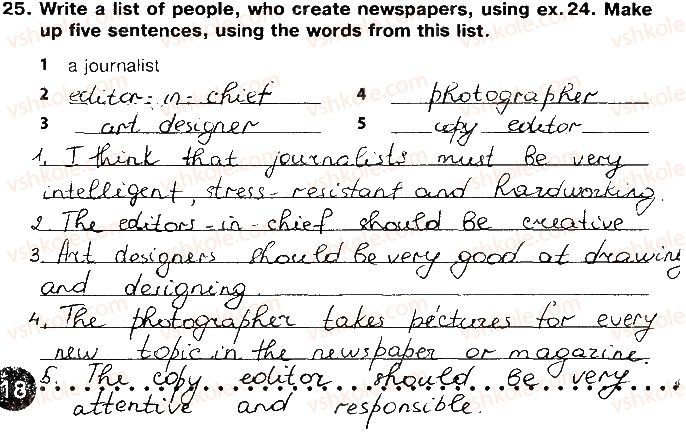 25. Write a list of people, who create newspapers, using ex. 24. Make
up five sentences, using the words from this list.
1 a journalist
2 editor-in-chief 4 photographer
3 art designer 5 copy editor
1. I think that journalists must be very
intelligent, stress-resistant and hardworking.
2. The editors-in-chief should be creative
3. Art designers should be very good at drawing
and designing.
4. The photographer takes pectures for every
new topic in the newspaper or magazine.
18 5. The copy editor should be very
attentive and responsible.